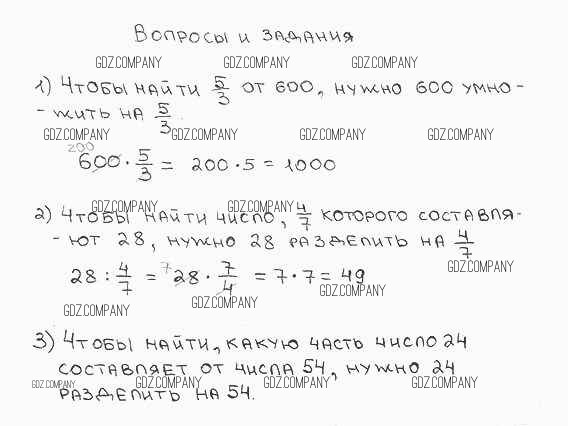 Вопросы и задания
GDZ.COMPANY GDZ.COMPANY GDZ.COMPANY
1) Чтобы найти 5/3 от 600, нужно 600 умно-
- жить на 5/3.
GDZ.COMPANY GDZ.COMPANY GDZ.COMPANY GDZ.COMPANY
200
600 · 5/3 = 200 · 5 = 1000
GDZ.COMPANY GDZ.COMPANY
2) Чтобы найти число, 4/7 которого составля-
- ют 28, нужно 28 разделить на 4/7
GDZ.COMPANY
7
28 : 4/7 = 28 · 7/4 = 7 · 7 = 49
GDZ.COMPANY GDZ.COMPANY GDZ.COMPANY
3) Чтобы найти, какую часть число 24
составляет от числа 54, нужно 24
GDZ.COMPANY GDZ.COMPANY GDZ.COMPANY GDZ.COMPANY
разделить на 54.